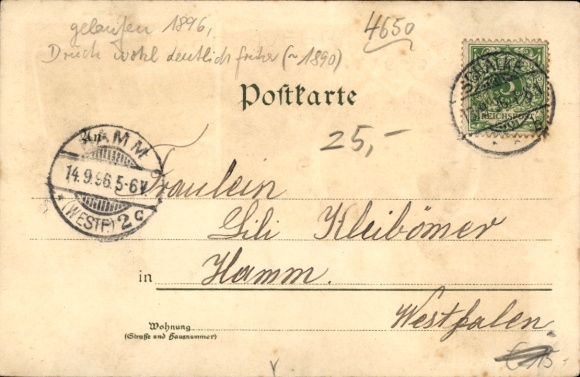 gelaufen 1896,
Druck wohl deutlich früher (~1890)
4650
SCHALKE
REICHSPOST
Postkarte
25,-
HAMM
14.9.96.5-6V.
(WESTF.) 2c
Fräulein
Lili Kleibömer
in Hamm.
Westfalen.
Wohnung
(Straße und Hausnummer)